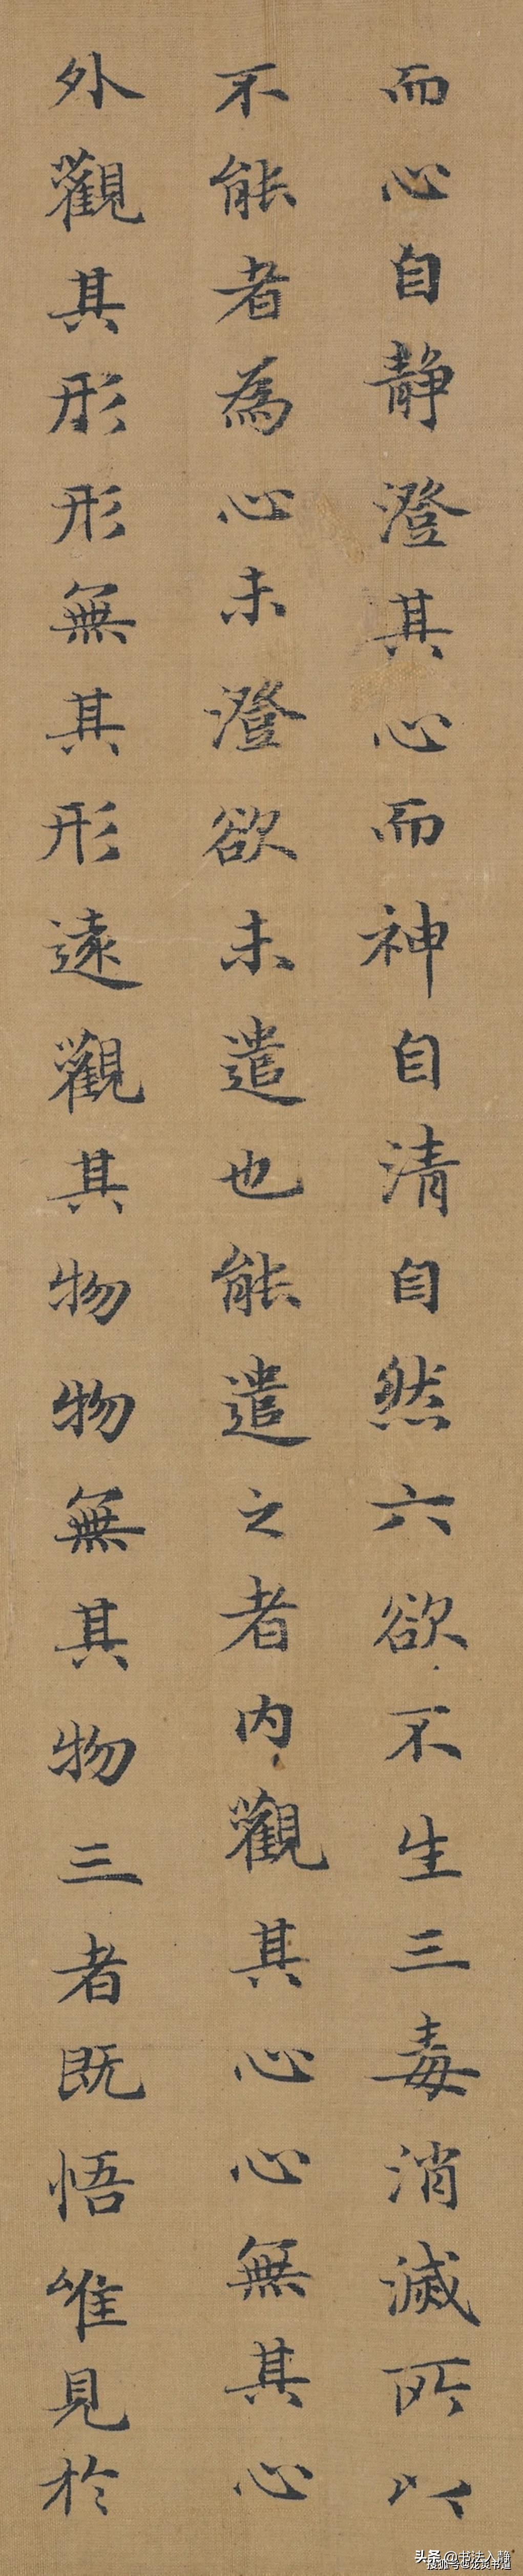 而心自静澄其心而神自清自然六欲不生三毒消滅所以
不能者為心未澄欲未遣也能遣之者内觀其心心無其心
外觀其形形無其形遠觀其物物無其物三者既悟唯見於
头条 @书法入静